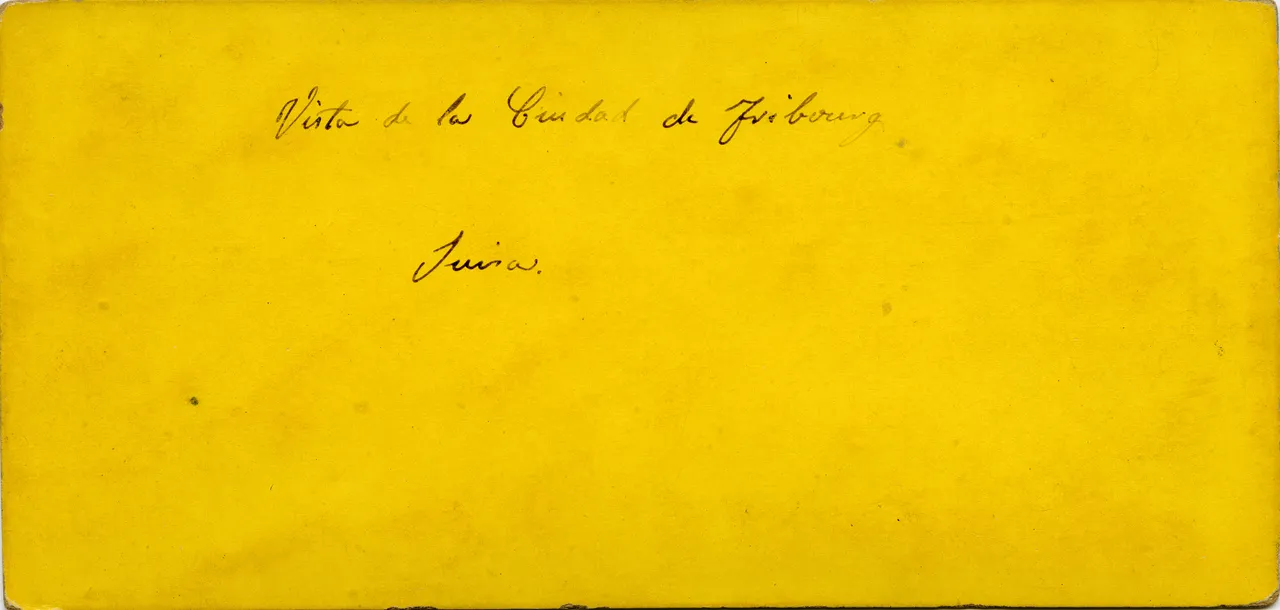 Vista de la Ciudad de Fribourg
Suisa.